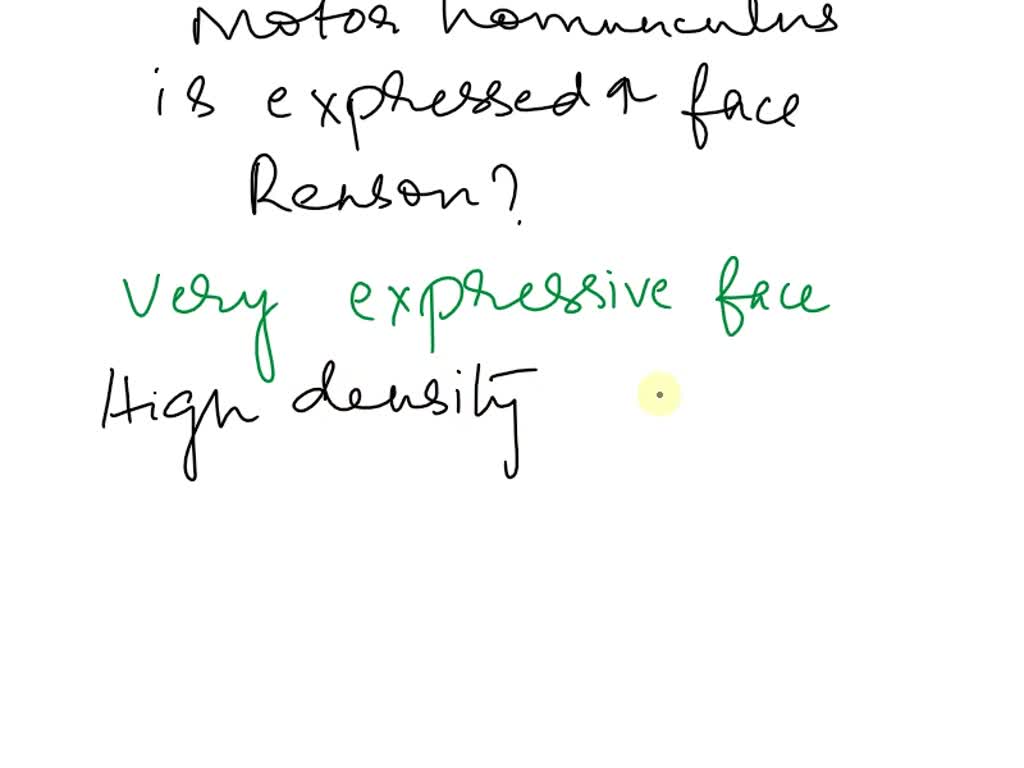 Motor homunculus
is expressed ↑ face
Reason?
Very expressive face
High density